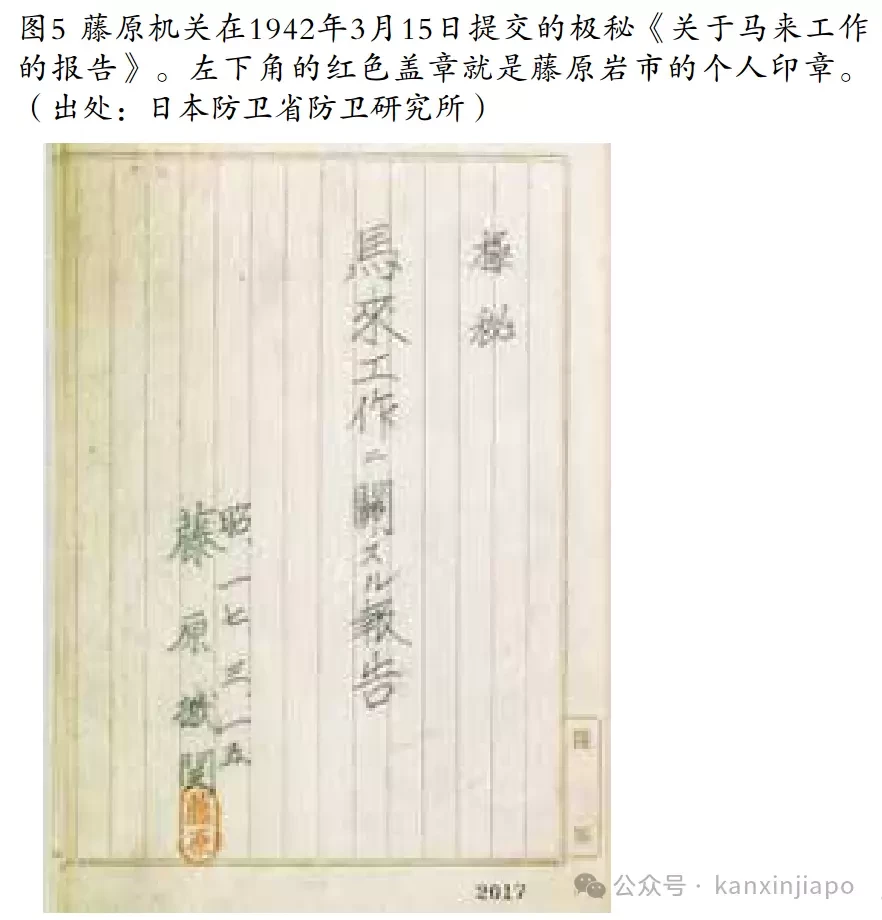 图5 藤原机关在1942年3月15日提交的极秘《关于马来工作
的报告》。左下角的红色盖章就是藤原岩市的个人印章。
（出处：日本防卫省防卫研究所）
極秘
馬來工作ニ關スル報告
昭、一七、三、一五
藤原機関
藤原
2617
公众号 · kanxinjiapo